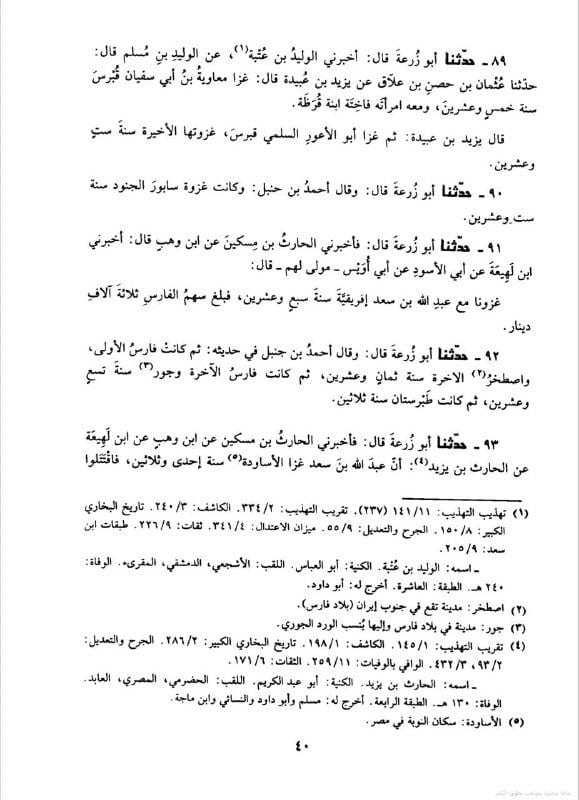 ٨٩ ـ حدّثنا أبو زُرعةَ قال: أخبرني الوليدُ بن عُتْبة(١)، عن الوليدِ بنِ مُسلم قال:
حدّثنا عُثْمان بن حصنِ بن علاّق عن يزيد بن عُبيدة قال: غزا معاويةُ بنُ أبي سفيان قُبْرسَ
سنة خمسٍ وعشرينَ، ومعه امرأتَه فاخِتَة ابنة قُرَظَة.
قال يزيد بن عبيدة: ثم غزا أبو الأعورِ السلمي قبرسَ، غزوتها الأخيرة سنةَ ستٍ
وعشرين.
٩٠ ـ حدّثنا أبو زُرعةَ قال: وقال أحمدُ بن حنبل: وكانت غزوة سابورَ الجنود سنة
ست وعشرين.
٩١ ـ حدّثنا أبو زُرعةَ قال: فأخبرني الحارثُ بن مِسكينَ عن ابن وهبٍ قال: أخبرني
ابن لَهِيعَةَ عن أبي الأسودِ عن أبي أُوَيْس ـ مولى لهم ـ قال:
غزونا مع عبدِ الله بن سعد إفريقيَّةَ سنةَ سبعٍ وعشرين، فبلغ سهمُ الفارسِ ثلاثةَ آلافِ
دينار.
٩٢ ـ حدّثنا أبو زُرعةَ قال: وقال أحمدُ بن حنبل في حديثه: ثم كانتْ فارسُ الأولى،
واصطخرُ(٢) الاخرة سنة ثمانٍ وعشرين، ثم كانت فارسُ الآخرة وجور(٣) سنةَ تسعٍ
وعشرين، ثم كانت طَبْرستان سنة ثلاثين.
٩٣ ـ حدّثنا أبو زُرعةَ قال: فأخبرني الحارثُ بن مسكين عن ابن وهبٍ عن ابن لَهِيعَة
عن الحارث بن يزيد(٤): أنّ عبدَ الله بنَ سعد غزا الأساودة(٥) سنة إحدى وثلاثين، فاقْتَتَلوا
(١) تهذيب التهذيب: ١٤١/١١ (٢٣٧). تقريب التهذيب: ٣٣٤/٢. الكاشف: ٢٤٠/٣. تاريخ البخاري
الكبير: ١٥٠/٨. الجرح والتعديل: ٥٥/٩. ميزان الاعتدال: ٣٤١/٤. ثقات: ٢٢٦/٩. طبقات ابن
سعد: ٢٠٥/٩.
ـ اسمه: الوليد بن عُتْبة. الكنية: أبو العباس. اللقب: الأشجعي، الدمشقي، المقرىء. الوفاة:
٢٤٠ هـ. الطبقة: العاشرة. أخرج له: أبو داود.
(٢) اصطخر: مدينة تقع في جنوب إيران (بلاد فارس).
(٣) جور: مدينة في بلاد فارس وإليها يُنسب الورد الجوري.
(٤) تقريب التهذيب: ١٤٥/١. الكاشف: ١٩٨/١. تاريخ البخاري الكبير: ٢٨٦/٢. الجرح والتعديل:
٩٣/٢، ٤٣٢/٣. الوافي بالوفيات: ٢٥٩/١١. الثقات: ١٧١/٦.
ـ اسمه: الحارث بن يزيد. الكنية: أبو عبد الكريم. اللقب: الحضرمي، المصري، العابد.
الوفاة: ١٣٠ هـ. الطبقة الرابعة. أخرج له: مسلم وأبو داود والنسائي وابن ماجة.
(٥) الأساودة: سكان النوبة في مصر.
٤٠